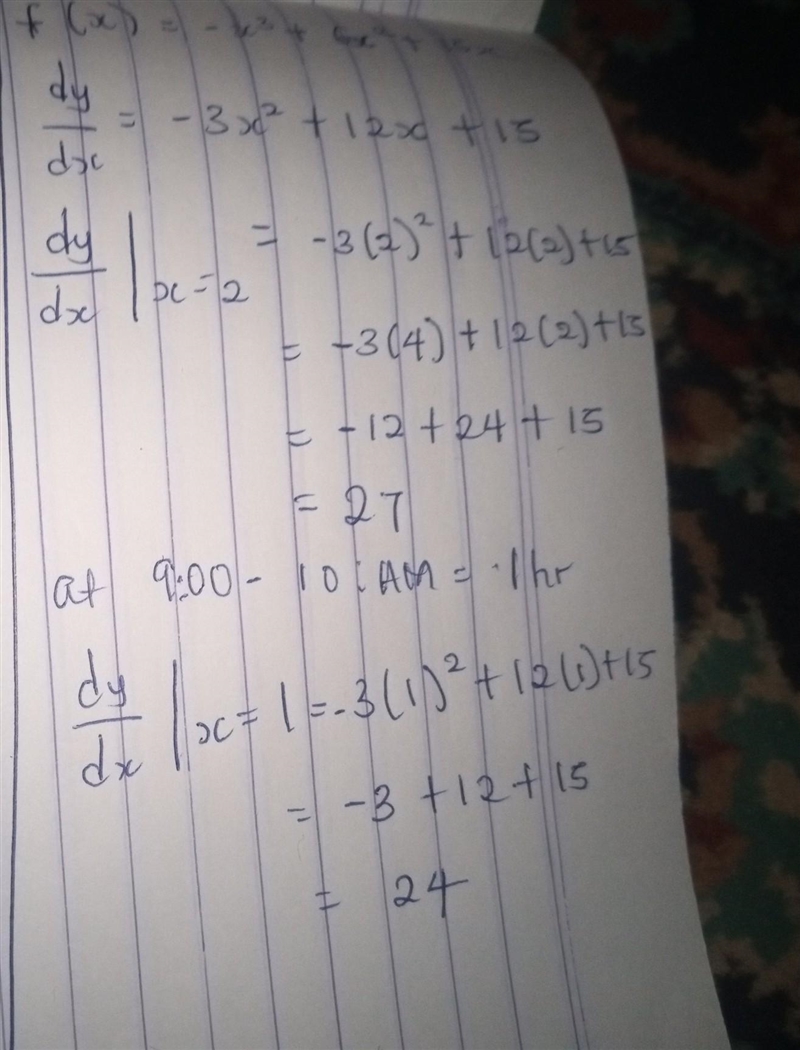 f(x) = -x³ + 6x² + 15x
dy/dx = -3x² + 12x + 15
dy/dx | x=2 = -3(2)² + 12(2)+15
= -3(4) + 12(2)+15
= -12 + 24 + 15
= 27
at 9:00 - 10:AM = 1hr
dy/dx | x=1 = -3(1)² + 12(1)+15
= -3 + 12 + 15
= 24